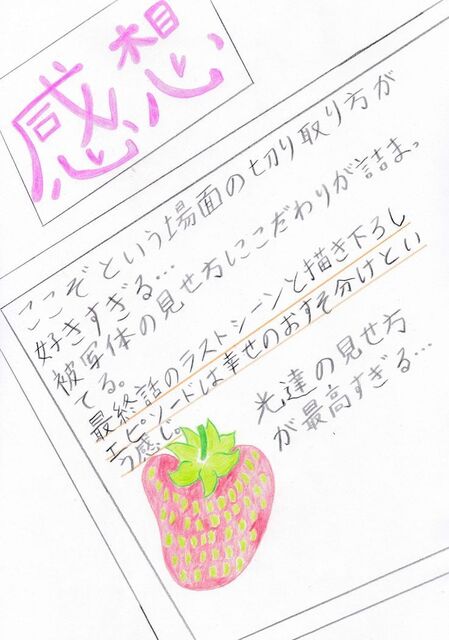 感想
ここぞという場面の切り取り方が
好きすぎる…
被写体の見せ方にこだわりが詰まっ
てる。
最終話のラストシーンと描き下ろし
エピソードは幸せのおすそ分けとい
う感じ。
光達の見せ方
が最高すぎる…